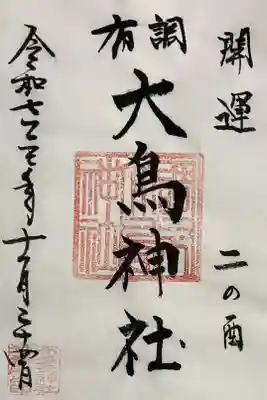 開運
二の酉
調
大鳥神社
令和七年十一月二十四日